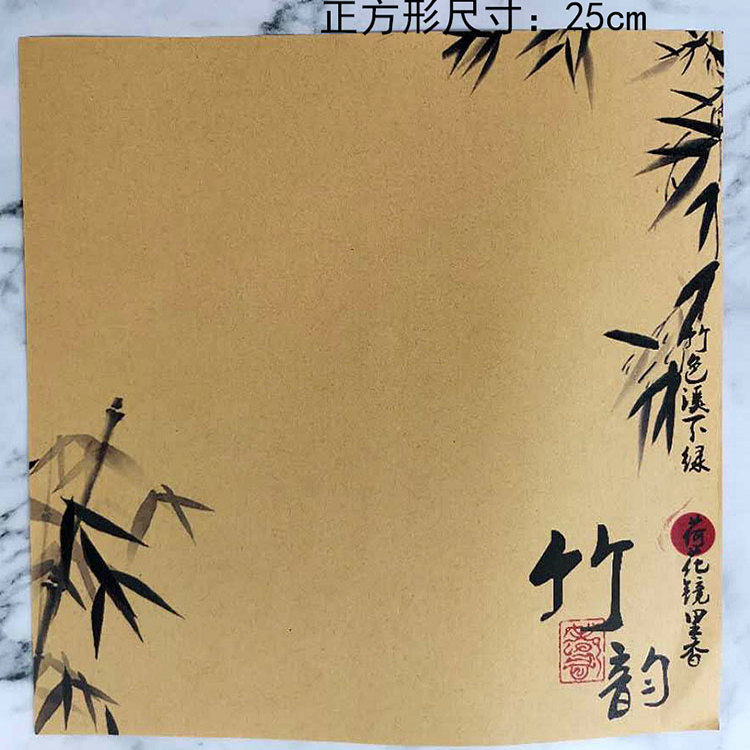 正方形尺寸：25cm
竹色溪下绿
荷花镜里香
竹韵